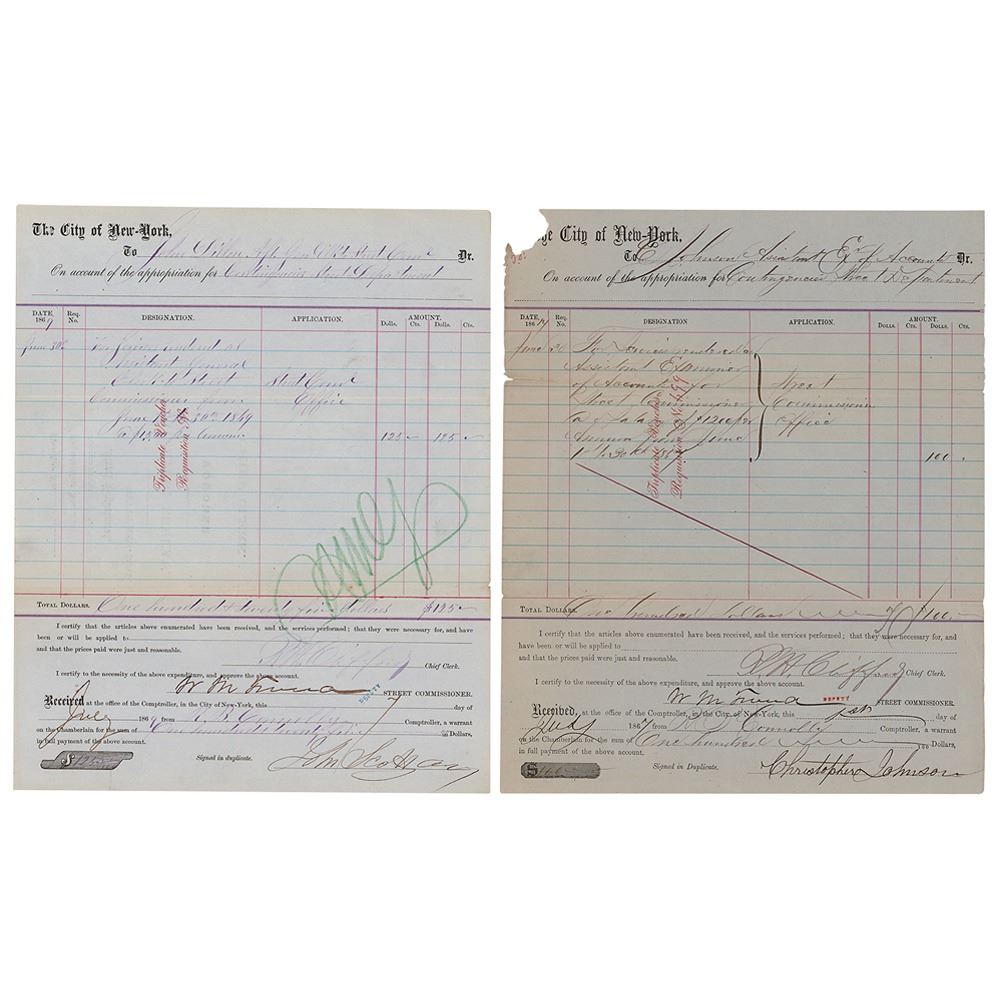 The City of New-York,
To John Dr.
On account of the appropriation for Contingencies Street Department
DATE, 1869 Req. No. DESIGNATION. APPLICATION. AMOUNT.
Dolls. Cts. Dolls. Cts.
June 30th For Services rendered as
Assistant General
Clerk to Street Street Comr
Commissioner from Office
June 1st to 30th 1869
@ $1500 per annum 125 125
Triplicate Voucher
Requisition No.
TOTAL DOLLARS. One hundred & twenty five dollars $125
I certify that the articles above enumerated have been received, and the services performed; that they were necessary for, and have
been or will be applied to
and that the prices paid were just and reasonable.
Chief Clerk.
I certify to the necessity of the above expenditure, and approve the above account.
DEPUTY STREET COMMISSIONER.
Received at the office of the Comptroller, in the City of New-York, this 7 day of
July 1869 from R. B. Connolly Comptroller, a warrant
on the Chamberlain for the sum of One hundred twenty five Dollars,
in full payment of the above account.
$125 Signed in duplicate.
The City of New-York,
To C. Johnson Assistant Exr of Accounts Dr.
On account of the appropriation for Contingencies Street Department
DATE, 1867 Req. No. DESIGNATION APPLICATION. AMOUNT.
DOLLS. CTS. DOLLS. CTS.
June 30 For Services rendered as
Assistant Examiner
of Accounts for Street
Street Commissioner Commissioner
at a salary of $1200 per Office
Annum from June
1st to 30th 1867 100
Triplicate Voucher
Requisition No. 499
TOTAL DOLLARS. One hundred dollars $100
I certify that the articles above enumerated have been received, and the services performed; that they were necessary for, and
have been or will be applied to
and that the prices paid were just and reasonable.
Chief Clerk.
I certify to the necessity of the above expenditure, and approve the above account.
DEPUTY STREET COMMISSIONER.
Received, at the office of the Comptroller, in the City of New-York, this 1st day of
July 1867 from R. B. Connolly Comptroller, a warrant
on the Chamberlain for the sum of One hundred 100 Dollars,
in full payment of the above account.
$100 Signed in Duplicate. Christopher Johnson